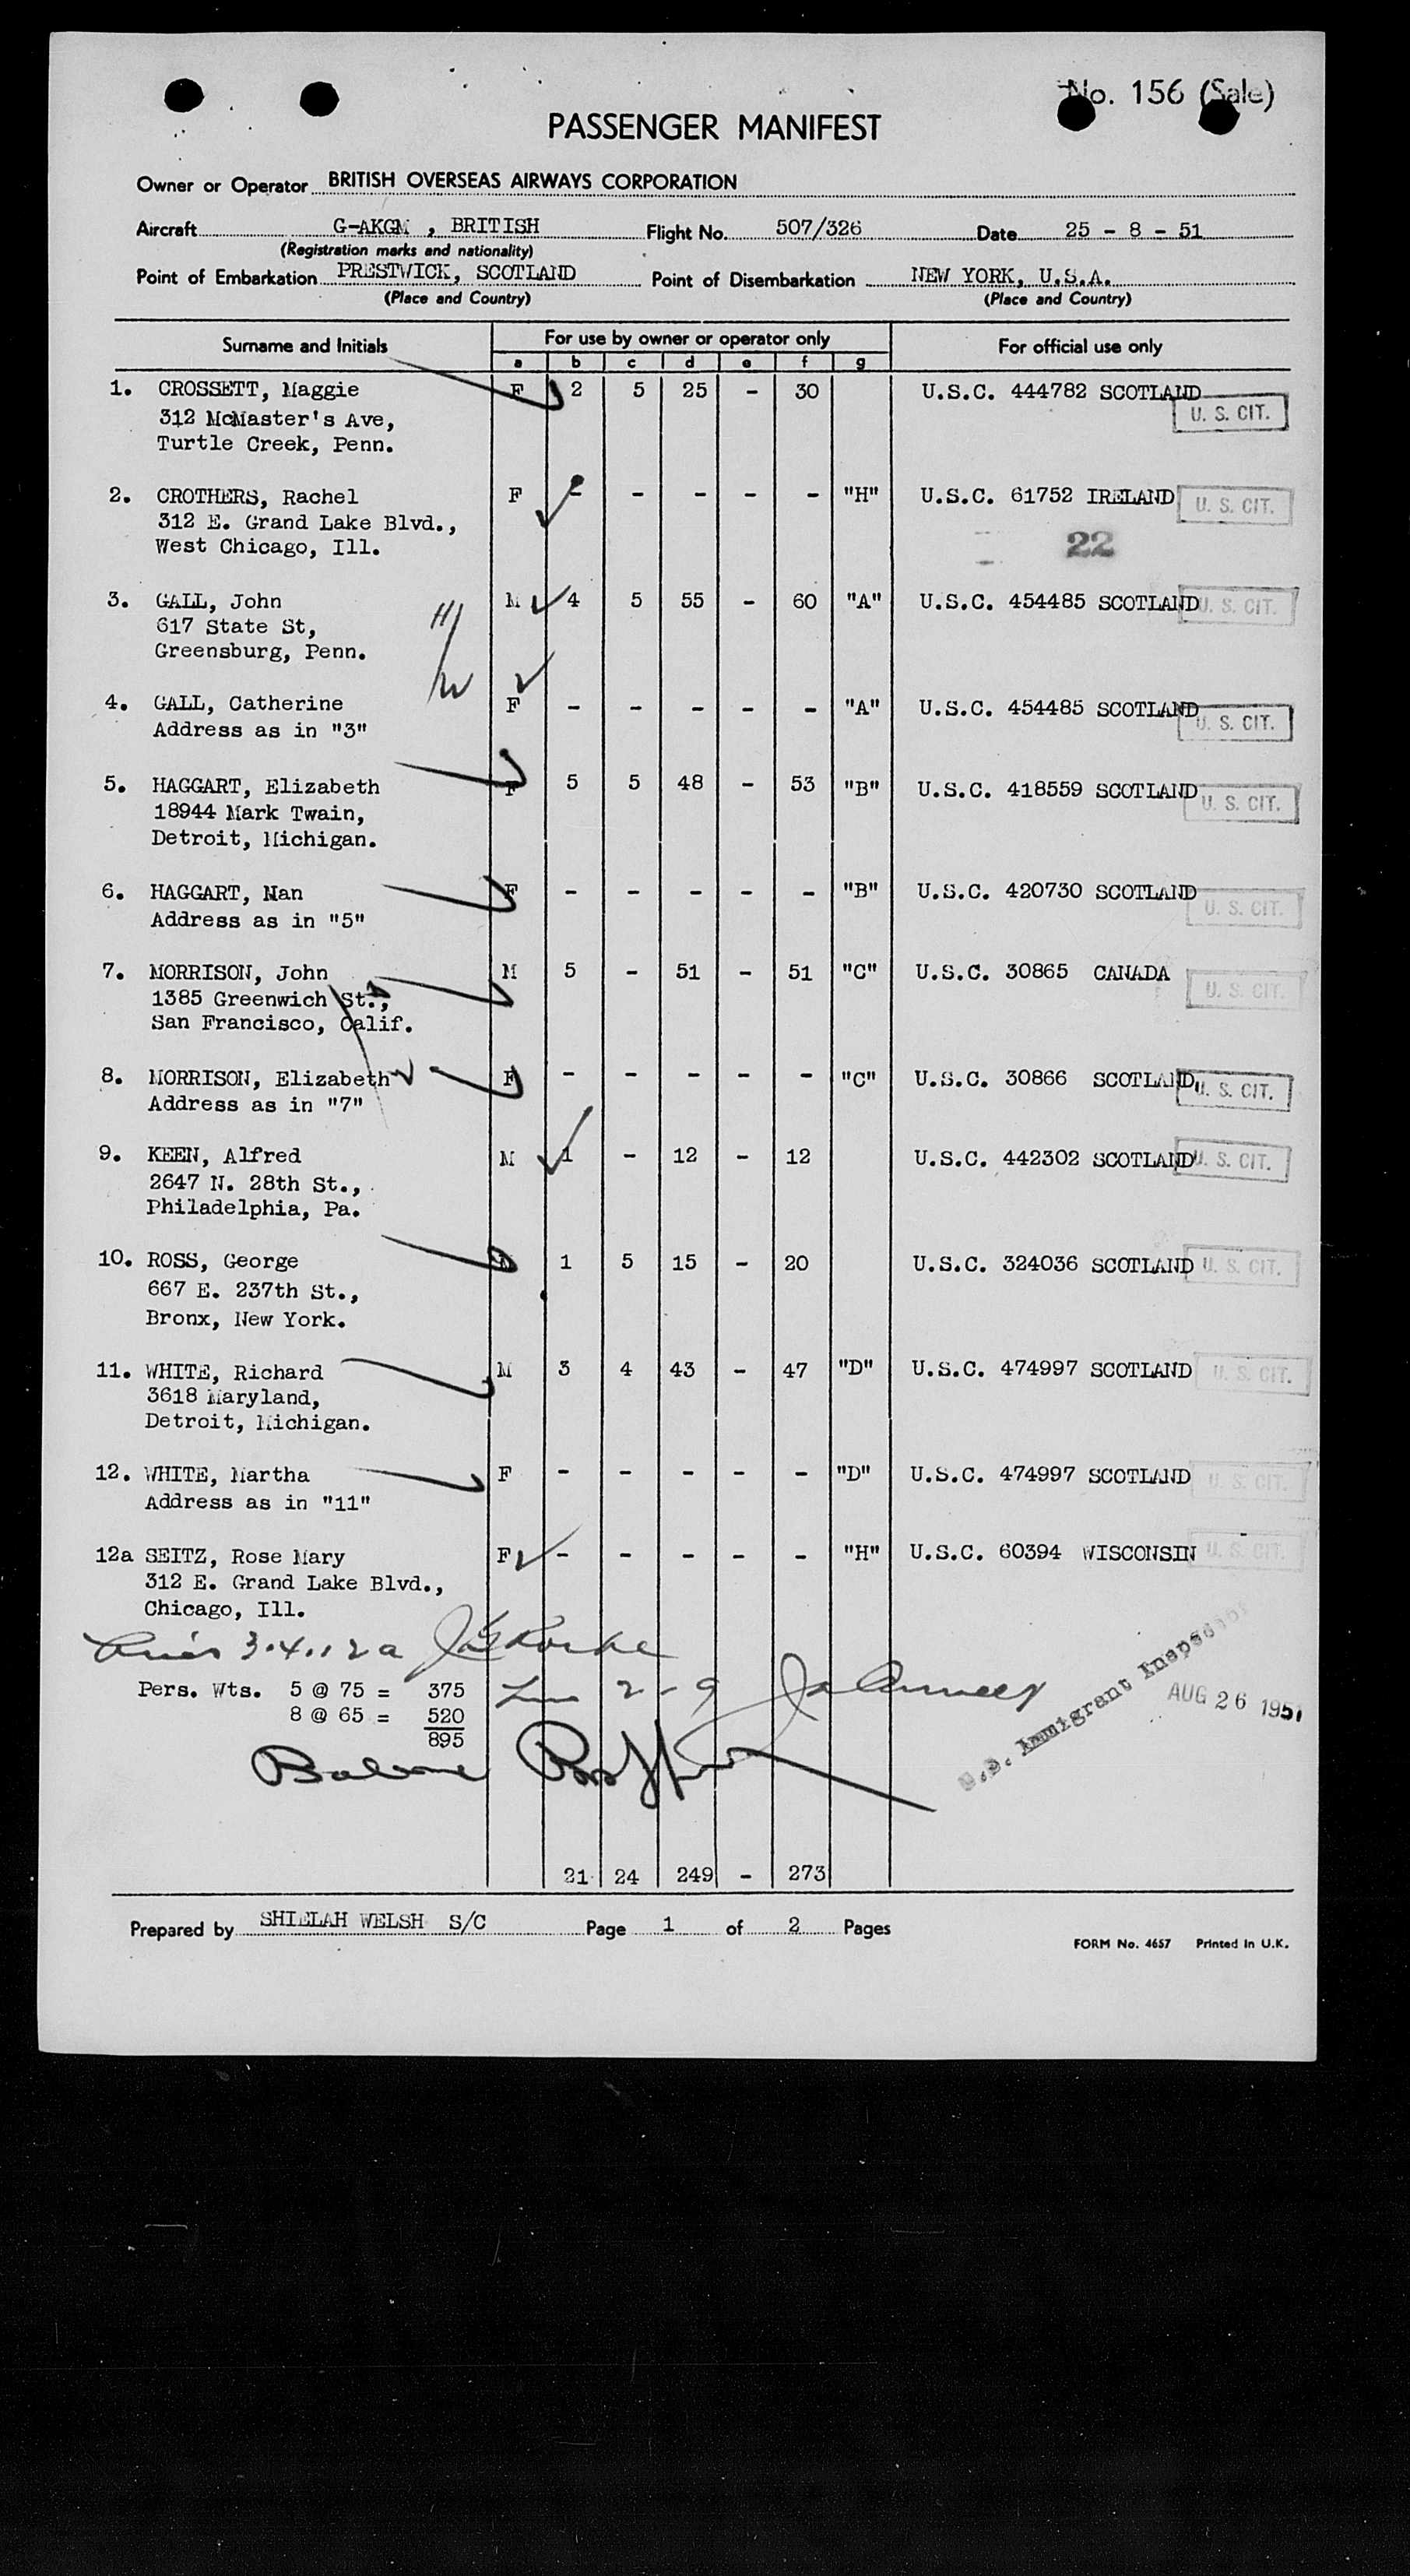 No. 156 (Sale)
PASSENGER MANIFEST
Owner or Operator BRITISH OVERSEAS AIRWAYS CORPORATION
Aircraft G-AKGM , BRITISH Flight No. 507/326 Date 25 - 8 - 51
(Registration marks and nationality)
Point of Embarkation PRESTWICK, SCOTLAND Point of Disembarkation NEW YORK, U.S.A.
(Place and Country) (Place and Country)
Surname and Initials For use by owner or operator only For official use only
a b c d e f g
1. CROSSETT, Maggie F 2 5 25 - 30 U.S.C. 444782 SCOTLAND
312 McMaster's Ave, U. S. CIT.
Turtle Creek, Penn.
2. CROTHERS, Rachel F - - - - - "H" U.S.C. 61752 IRELAND U. S. CIT.
312 E. Grand Lake Blvd.,
West Chicago, Ill. 22
3. GALL, John M 4 5 55 - 60 "A" U.S.C. 454485 SCOTLAND U. S. CIT.
617 State St, H/
Greensburg, Penn.
W
4. GALL, Catherine F - - - - - "A" U.S.C. 454485 SCOTLAND
Address as in "3" U. S. CIT.
5. HAGGART, Elizabeth F 5 5 48 - 53 "B" U.S.C. 418559 SCOTLAND
18944 Mark Twain, U. S. CIT.
Detroit, Michigan.
6. HAGGART, Nan F - - - - - "B" U.S.C. 420730 SCOTLAND
Address as in "5" U. S. CIT.
7. MORRISON, John M 5 - 51 - 51 "C" U.S.C. 30865 CANADA
1385 Greenwich St., U. S. CIT.
San Francisco, Calif.
8. MORRISON, Elizabeth F - - - - - "C" U.S.C. 30866 SCOTLAND. U. S. CIT.
Address as in "7"
9. KEEN, Alfred M 1 - 12 - 12 U.S.C. 442302 SCOTLAND U. S. CIT.
2647 N. 28th St.,
Philadelphia, Pa.
10. ROSS, George M 1 5 15 - 20 U.S.C. 324036 SCOTLAND U. S. CIT.
667 E. 237th St.,
Bronx, New York.
11. WHITE, Richard M 3 4 43 - 47 "D" U.S.C. 474997 SCOTLAND U. S. CIT.
3618 Maryland,
Detroit, Michigan.
12. WHITE, Martha F - - - - - "D" U.S.C. 474997 SCOTLAND U. S. CIT.
Address as in "11"
12a SEITZ, Rose Mary F - - - - - "H" U.S.C. 60394 WISCONSIN U. S. CIT.
312 E. Grand Lake Blvd.,
Chicago, Ill.
3.4.12a
Pers. Wts. 5 @ 75 = 375 2-9
8 @ 65 = 520
895
U.S. Immigrant Inspector
AUG 26 1951
21 24 249 - 273
Prepared by SHIELAH WELSH S/C Page 1 of 2 Pages
FORM No. 4657 Printed in U.K.